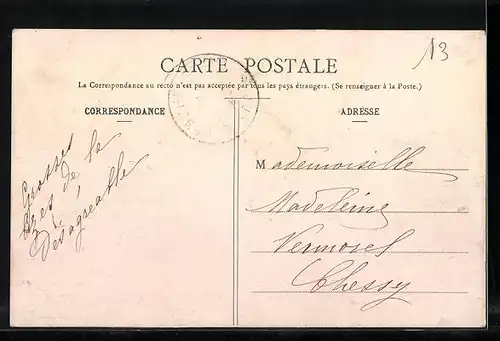 13
CARTE POSTALE
La Correspondance au recto n'est pas acceptée par tous les pays étrangers. (Se renseigner à la Poste.)
CORRESPONDANCE
ADRESSE
Grosses
Bises de la
Désagréable
Mademoiselle
Madeleine
Vermorel
Chessy